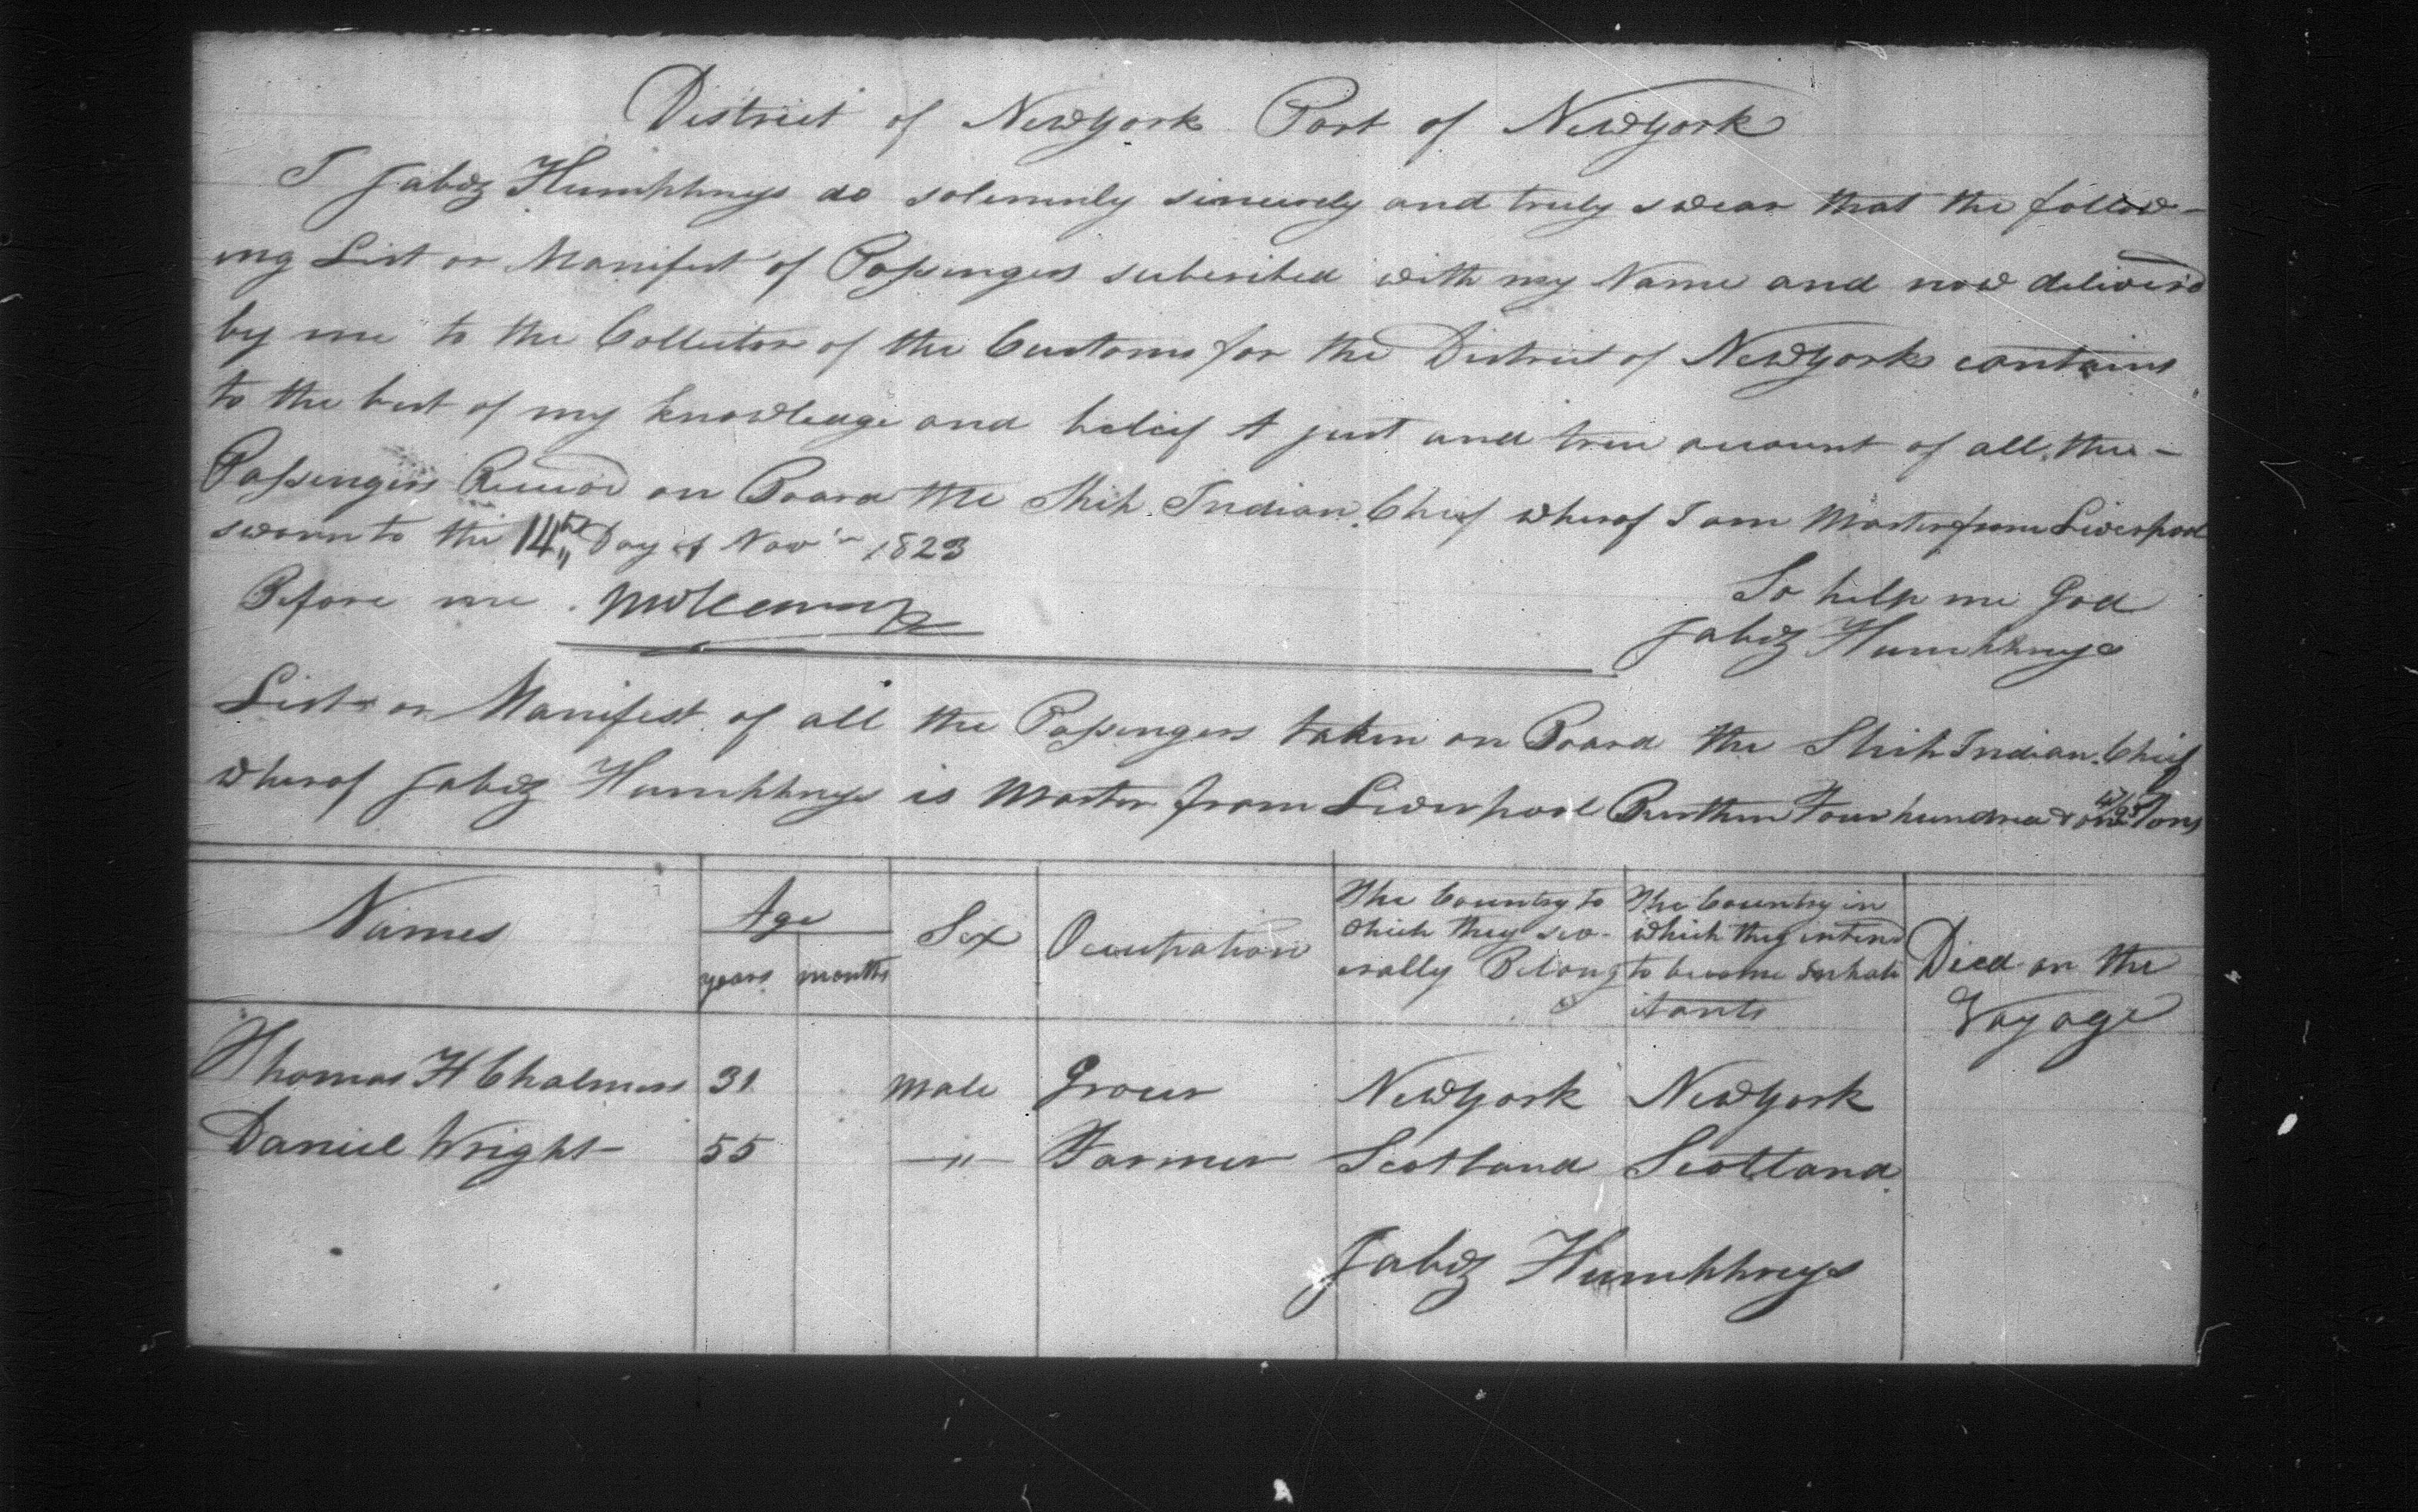 District of NewYork Port of NewYork
I Jabez Humphreys do solemnly sincerely and truly swear that the follow-
ing List or Manifest of Passengers subscribed with my Name and now deliverd
by me to the Collector of the Customs for the District of NewYork contains
to the best of my knowledge and belief A just and true account of all the -
Passengers Receivd on Board the Ship Indian Chief wherof I am Master from Liverpool
sworn to the 14th Day of Novr 1823
Before me
So help me God
Jabez Humphreys
List or Manifest of all the Passengers taken on Board the Ship Indian Chief
wherof Jabez Humphreys is Master from Liverpool Burthen Four hundred & one 47/95 Tons
Names Age years months Sex Occupation The Country to which they sev-erally Belong The Country in which they intend to become Inhabitants Died on the Voyage
Thomas H Chalmers 31 Male Grocer NewYork NewYork
Daniel Wright 55 -"- Farmer Scotland Scotland
Jabez Humphreys